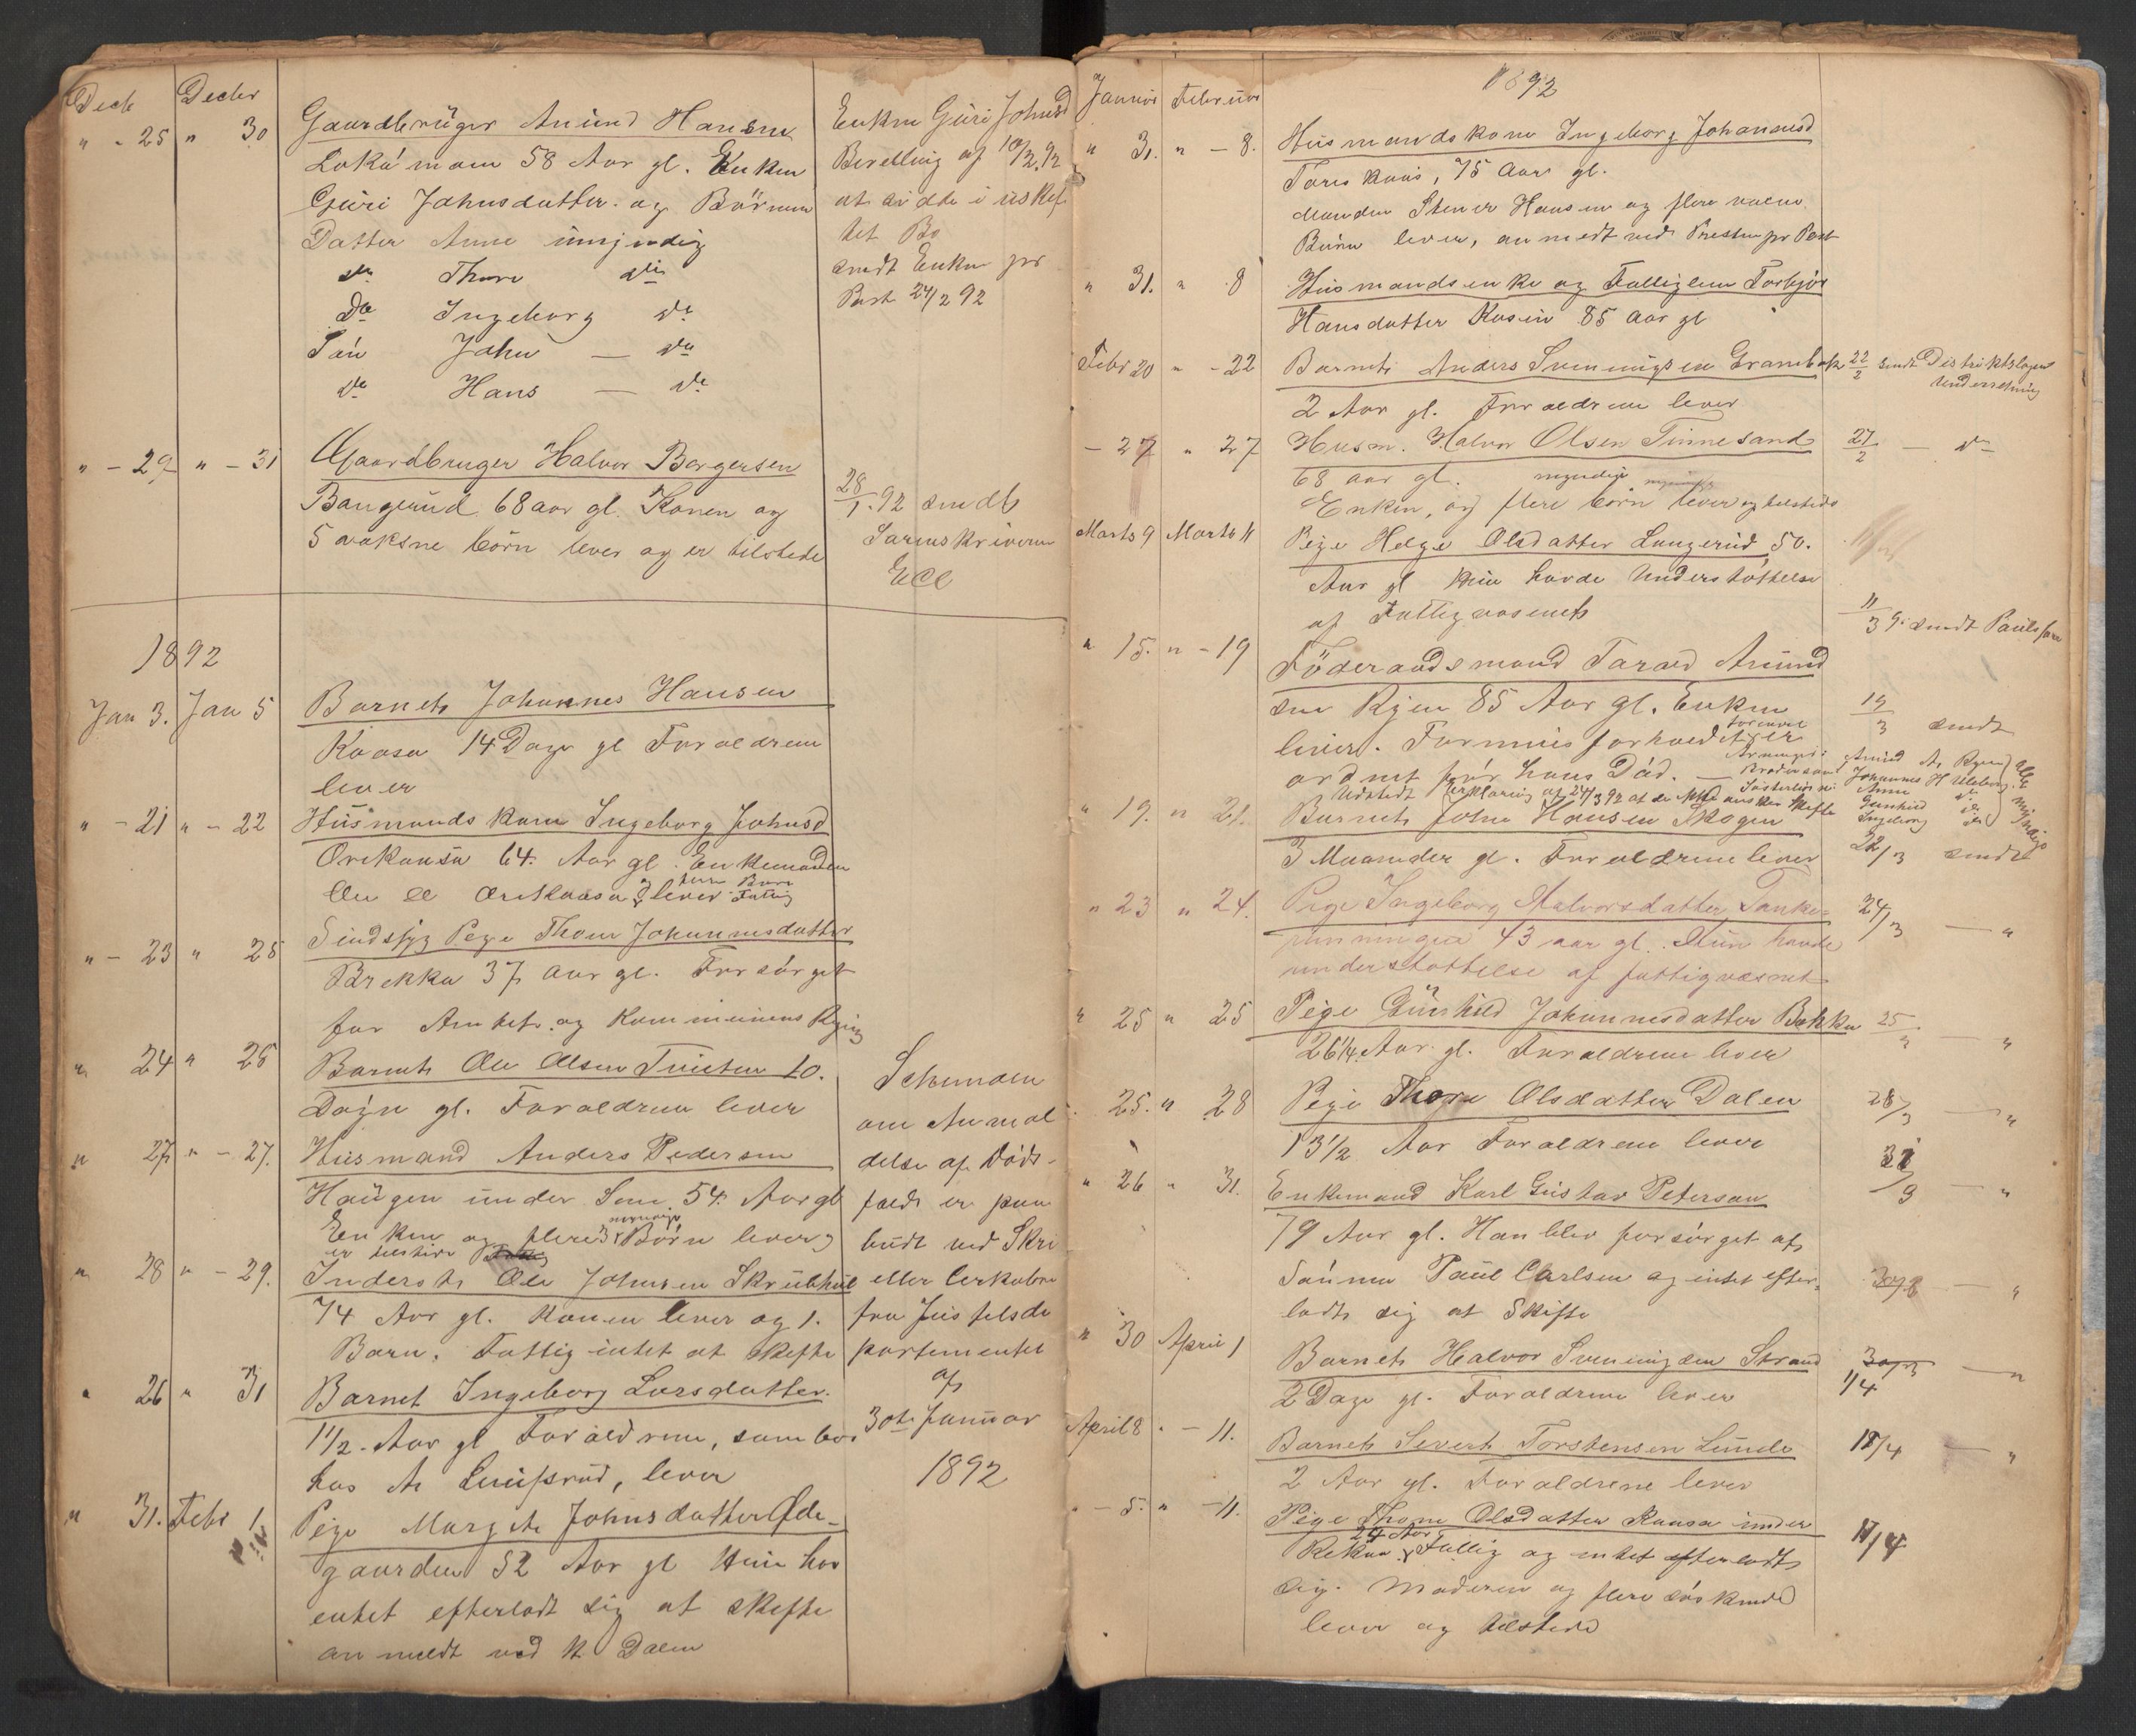 Decb Decbr
" - 25 " 30 Gaardbruger Amund Hansen
58 Aar gl. Enken
Guri Johnsdatter og Börnene
Datter Anne umyndig
do Thore do
do Ingeborg do
Sön John — do
do Hans — do
Enken Guri Johnsd
Bevilling af 10/2 92
at sidde i uskif
tet Bo
sendt Enken pr
Post 24/2 92
" - 29 " - 31 Gaardbruger Halvor Borgersen
Bangerud 68 aar gl. Konen og
5 voksne börn lever og er tilstede
28/1. 92 sendt
Sorenskriveren
1892
Jan 3. Jan 5 Barnet Johannes Hansen
Kaasa 14 Dage gl Foraeldrene
lever
" - 21 " - 22 Husmandskone Ingeborg Johnsd
64. Aar gl. Enkemanden
lever Fattig
" - 23 " 25 Sindssyg Pige Thone Johannesdatter
Brekka 37 Aar gl. Forsörget
for Amtets og Kommunens Regning
" 24 " 26 Barnet Ole Olsen Tveiten 10.
Dage gl. Foraeldrene lever
" 27 " - 27. Husmand Anders Pedersen
Haugen under Sem 54. Aar gl
Enken og flere myndige Börn lever
er tilstede
" 28 " - 29. Inderst Ole Johnsen Skrubhul
74 Aar gl. Konen lever og 1.
Barn. Fattig intet at skifte
" 26 " 31 Barnet Ingeborg Larsdatter.
1 1/2. Aar gl Foraeldrene, som bor
hos lever
" 31. Febr 1. Pige Margit Johnsdatter Öde-
gaarden 52 Aar gl Hun har
entet efterladt sig at skifte
anmeldt ved K Dalen
Schemaer
om Anmel
delse af Döds-
fald er paa
budt ved Skri
velse Cirkulære
fra Justisde
partementet
af
30te Januar
1892
Januar Februar 1892
" 31. " - 8. Husmandskone Ingeborg Johannesd
75 Aar gl.
Manden Stener Hansen og flere voxne
Börn lever, anmeldt ved Presten pr Post
" 31. " 8 Husmandsenke og Fattiglem Torbjör
Hansdatter Kasin 85 Aar gl
Febr 20 " - 22 Barnet Anders Svenningsen Grambak
2 Aar gl. Foraeldrene lever
22/2 sendt Distriktslægen
Underretning
- 27 " 27 Husm. Halvor Olsen Tinnesand
68 aar gl. myndige
Enken, og flere börn lever og tilstede
27/2 — do
Marts 9 Marts 11 Pige Helge Olsdatter Langerud 50.
Aar gl Hun havde Understöttelse
af Fattigvæsenet
11/3 92 sendt
" 15. " - 19 Föderaadsmand Tarald Amund
sen Ryen 85 Aar gl. Enken
lever. Formuesforholdet er forinden
ordnet för hans Död. —
Udstedt Erklæring af 24/3 92
19/3 sendt
Amund A. Ryen
Johannes H
Anne do
Gunhild do
Ingeborg do
alle myndige
" 19. " 21. Barnet John Hansen Skogen
3 Maaneder gl. Foraeldrene lever
22/3 sendt
" 23 " 24. Pige Ingeborg Halvorsdatter
43 aar gl. Hun havde
understöttelse af fattigvæsnet
24/3 — "
" 25 " 25 Pige Gunhild Johannesdatter Bekka
26 1/4. Aar gl. Foraeldrene lever
25/" — "
" 25. " 28 Pige Thone Olsdatter Dalen
13 1/2 Aar Foraeldrene lever
28/3 — "
" 26 " 31. Enkemand Karl Gustav Petersen
79 Aar gl. Han blev forsörget af
Sönnen Paul Carlsen og intet efter-
ladt sig at Skifte
31/3 — "
" 30 April 1 Barnet Halvor Svenningsen Strand
2 Dage gl. Foraeldrene lever
1/4
April 8 " - 11. Barnet Severt Torstensen Lunde
2 Aar gl. Foraeldrene lever
11/4 — "
" - 5. " - 11. Pige Thone Olsdatter Kaasa under
24 Aar
Fattig og intet efterladt
sig. Moderen og flere söskende
lever og tilstede
11/4